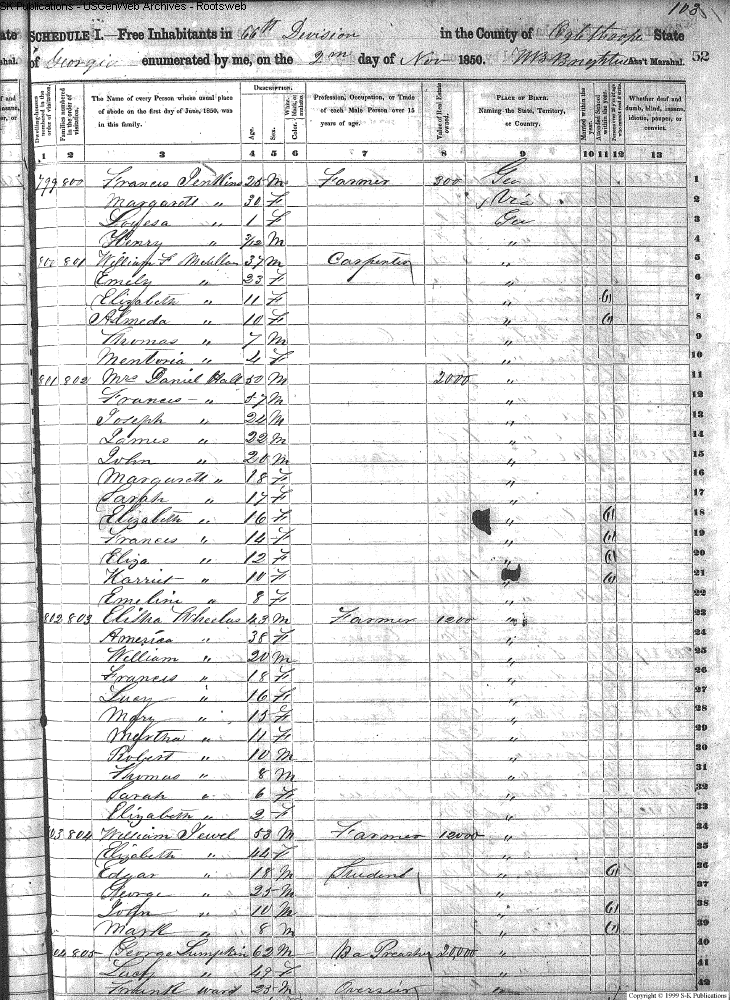 SK Publications - USGenWeb Archives - Rootsweb
103
SCHEDULE I.—Free Inhabitants in 66th Division in the County of Oglethorpe State
of Georgia enumerated by me, on the 2nd day of Nov 1850. Ass't Marshal. 52
ate
hal.
Dwelling-houses numbered in the order of visitation.
Families numbered in the order of visitation.
The Name of every Person whose usual place of abode on the first day of June, 1850, was in this family.
DESCRIPTION.
Age.
Sex.
Color.
Profession, Occupation, or Trade of each Male Person over 15 years of age.
Value of Real Estate owned.
PLACE OF BIRTH. Naming the State, Territory, or Country.
Married within the year.
Attended School within the year.
Whether deaf and dumb, blind, insane, idiotic, pauper, or convict.
1 2 3 4 5 6 7 8 9 10 11 12 13
799 800 Francis Jenkins 25 M Farmer 300 Geo 1
Margarett " 30 F Via 2
Louesa " 1 F Geo 3
Henry " 3/12 M " 4
800 801 William F 37 M Carpenter " 5
Emely " 23 F " 6
Elizabeth " 11 F " 1 7
Almeda " 10 F " 1 8
Thomas " 7 M " 9
Mentoria " 4 F " 10
801 802 Mrs Daniel Hall 50 M 2000 " 11
Francis " 57 M " 12
Joseph " 24 M " 13
James " 22 M " 14
John " 20 M " 15
Margarett " 18 F " 16
Sarah " 17 F " 17
Elizabeth " 16 F " 1 18
Frances " 14 F " 1 19
Eliza " 12 F " 1 20
Harriet " 10 F " 1 21
Emeline " 8 F " 22
802 803 Elisha Wheelus 43 M Farmer 1200 " 23
America " 38 F " 24
William " 20 M " 25
Francis " 18 F " 26
Lucy " 16 F " 27
Mary " 15 F " 28
Martha " 11 F " 29
Robert " 10 M " 30
Thomas " 8 M " 31
Sarah " 6 F " 32
Elizabeth " 2 F " 33
03 804 William Jewel 53 M Farmer 12000 " 34
Elizabeth " 44 F " 35
Edgar " 18 M Student " 1 36
George " 25 M " 37
John " 10 M " 1 38
Mark " 8 M " 1 39
04 805 George Lumpkin 62 M Ba Preacher 20,000 " 40
Lucy " 49 F " 41
Frank Ward 25 M Overseer " 42
Copyright © 1999 S-K Publications